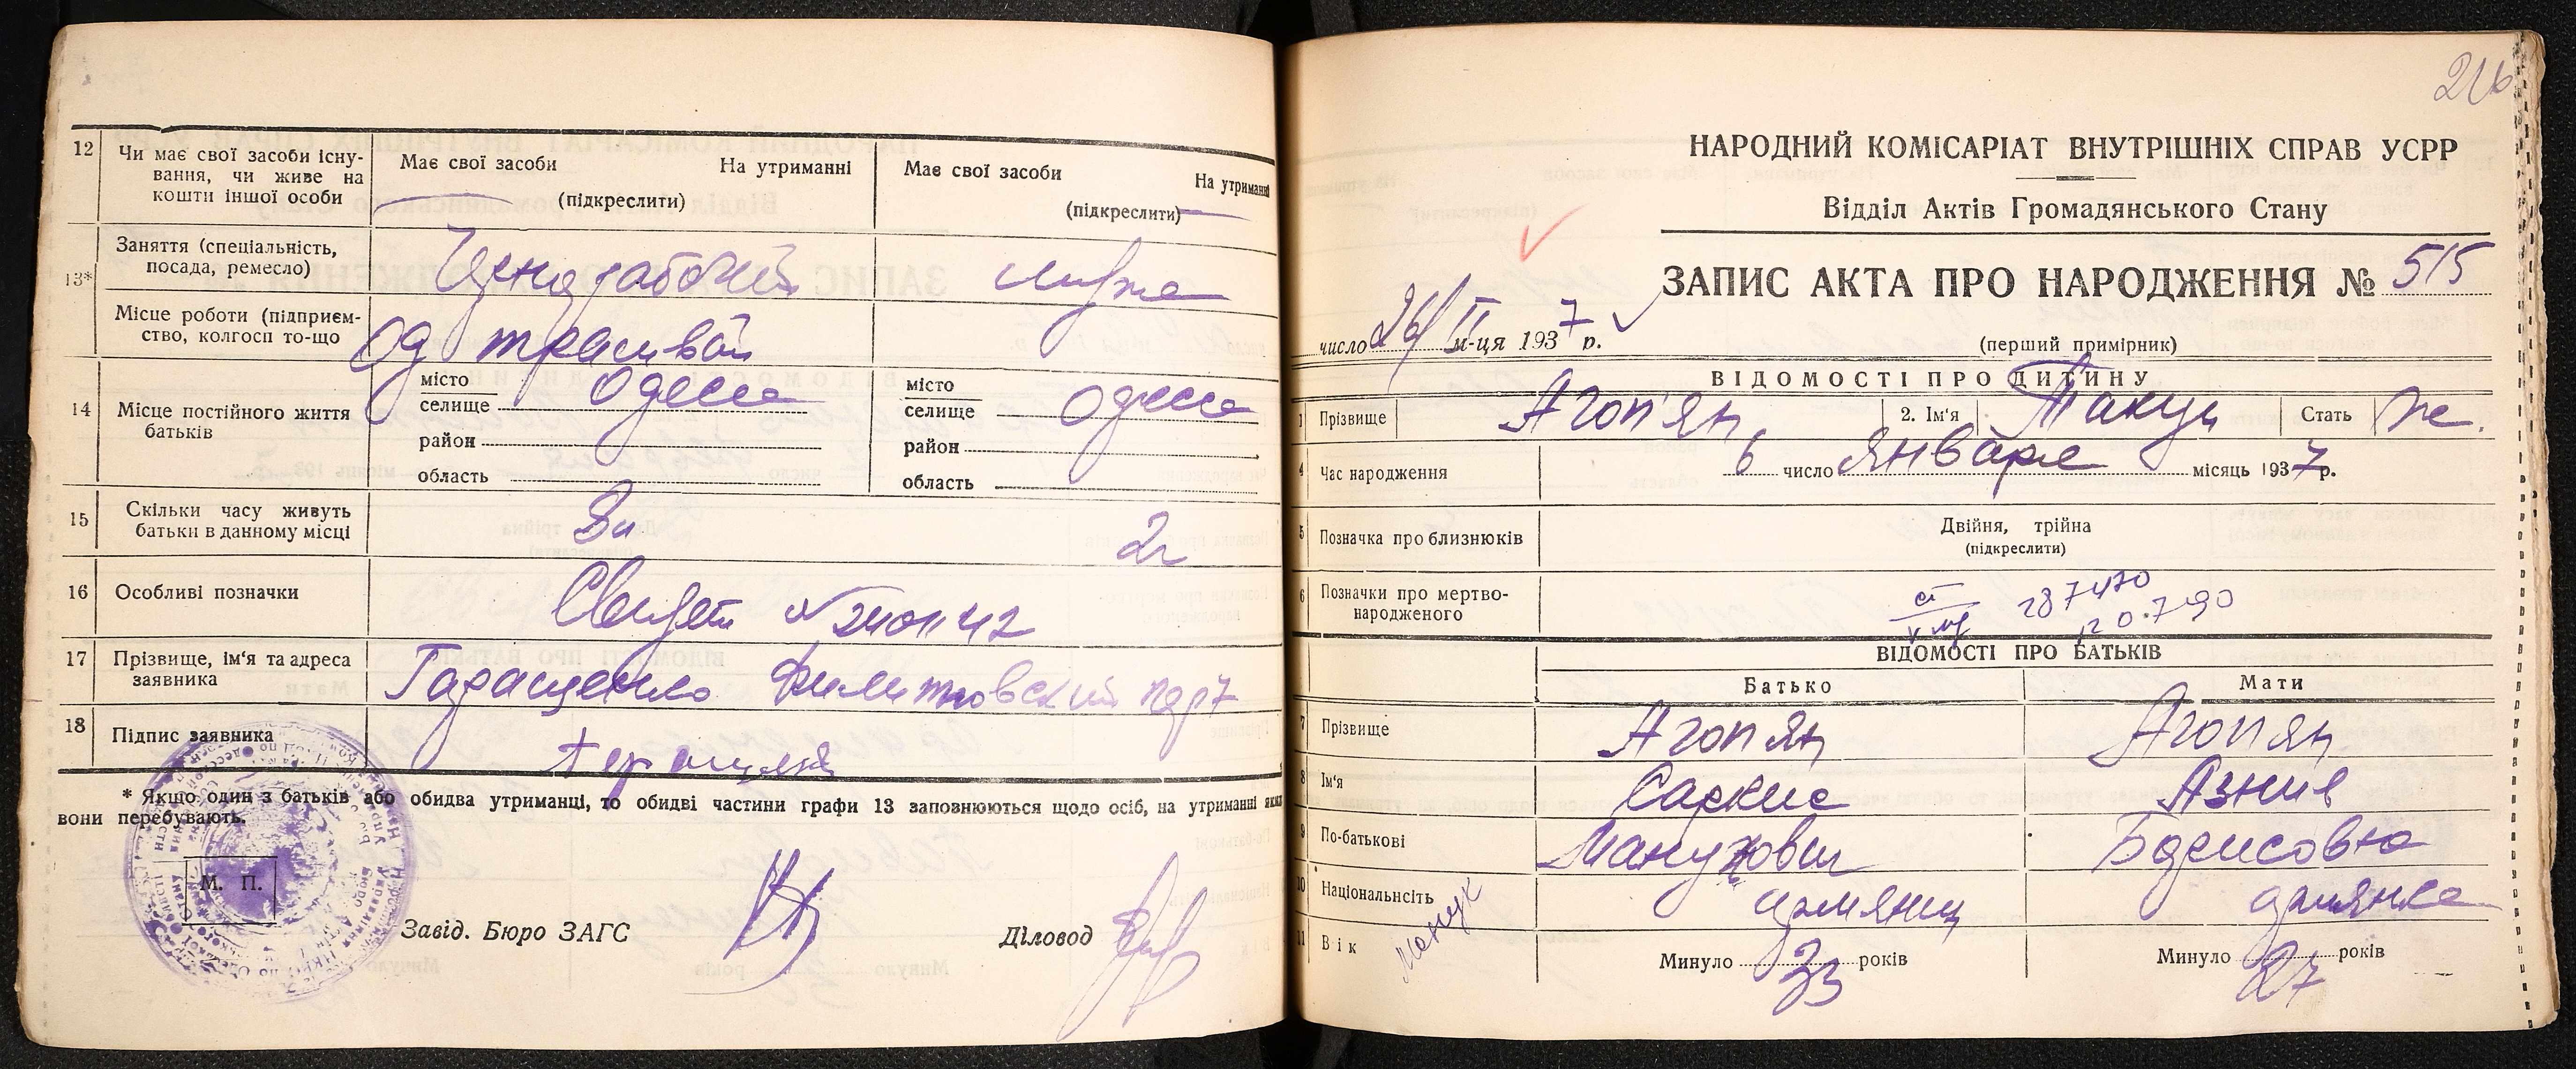 12
Чи має свої засоби існу-
вання, чи живе на
кошти іншої особи
Має свої засоби На утриманні
(підкреслити)
Має свої засоби На утриманні
(підкреслити)
13*
Заняття (спеціальність,
посада, ремесло)
Чернорабочий
Місце роботи (підприєм-
ство, колгосп то-що
Од трамвай
14
Місце постійного життя
батьків
місто
селище Одесса
район
область
місто
селище Одесса
район
область
15
Скільки часу живуть
батьки в данному місці
2г
16
Особливі позначки
Свидет №
17
Прізвище, ім‘я та адреса
заявника
Геращенко
18
Підпис заявника
* Якщо один з батьків або обидва утриманці, то обидві частини графи 13 заповнюються щодо осіб, на утриманні яких
вони перебувають.
М. П.
Завід. Бюро ЗАГС
Діловод
216
НАРОДНИЙ КОМІСАРІАТ ВНУТРІШНІХ СПРАВ УСРР
Відділ Актів Громадянського Стану
ЗАПИС АКТА ПРО НАРОДЖЕННЯ № 515
число 26/ II м-ця 1937 р.
(перший примірник)
ВІДОМОСТІ ПРО ДИТИНУ
1 Прізвище Агоп'ян 2. Ім'я Такуи Стать ж.
4 Час народження 6 число января місяць 1937 р.
5 Позначка про близнюків
Двійня, трійна
(підкреслити)
6 Позначки про мертво-
народженого
287470
20.7.90
ВІДОМОСТІ ПРО БАТЬКІВ
Батько Мати
7 Прізвище Агопян Агопян
8 Ім‘я Саркис Азнив
9 По-батькові Манукович Борисовна
10 Національність армянин армянка
Манук
11 Вік Минуло 33 років Минуло 27 років